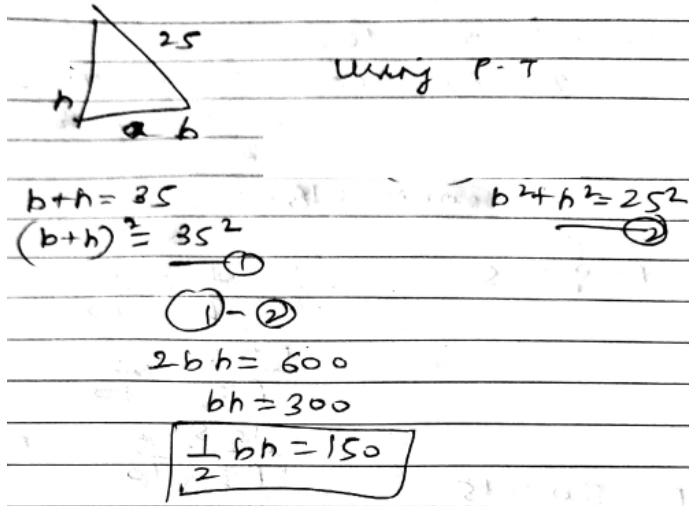 25
Using P.T
h
b
b+h = 35
b²+h² = 25²
(b+h)² = 35²
②
①
① - ②
2bh = 600
bh = 300
1/2 bh = 150